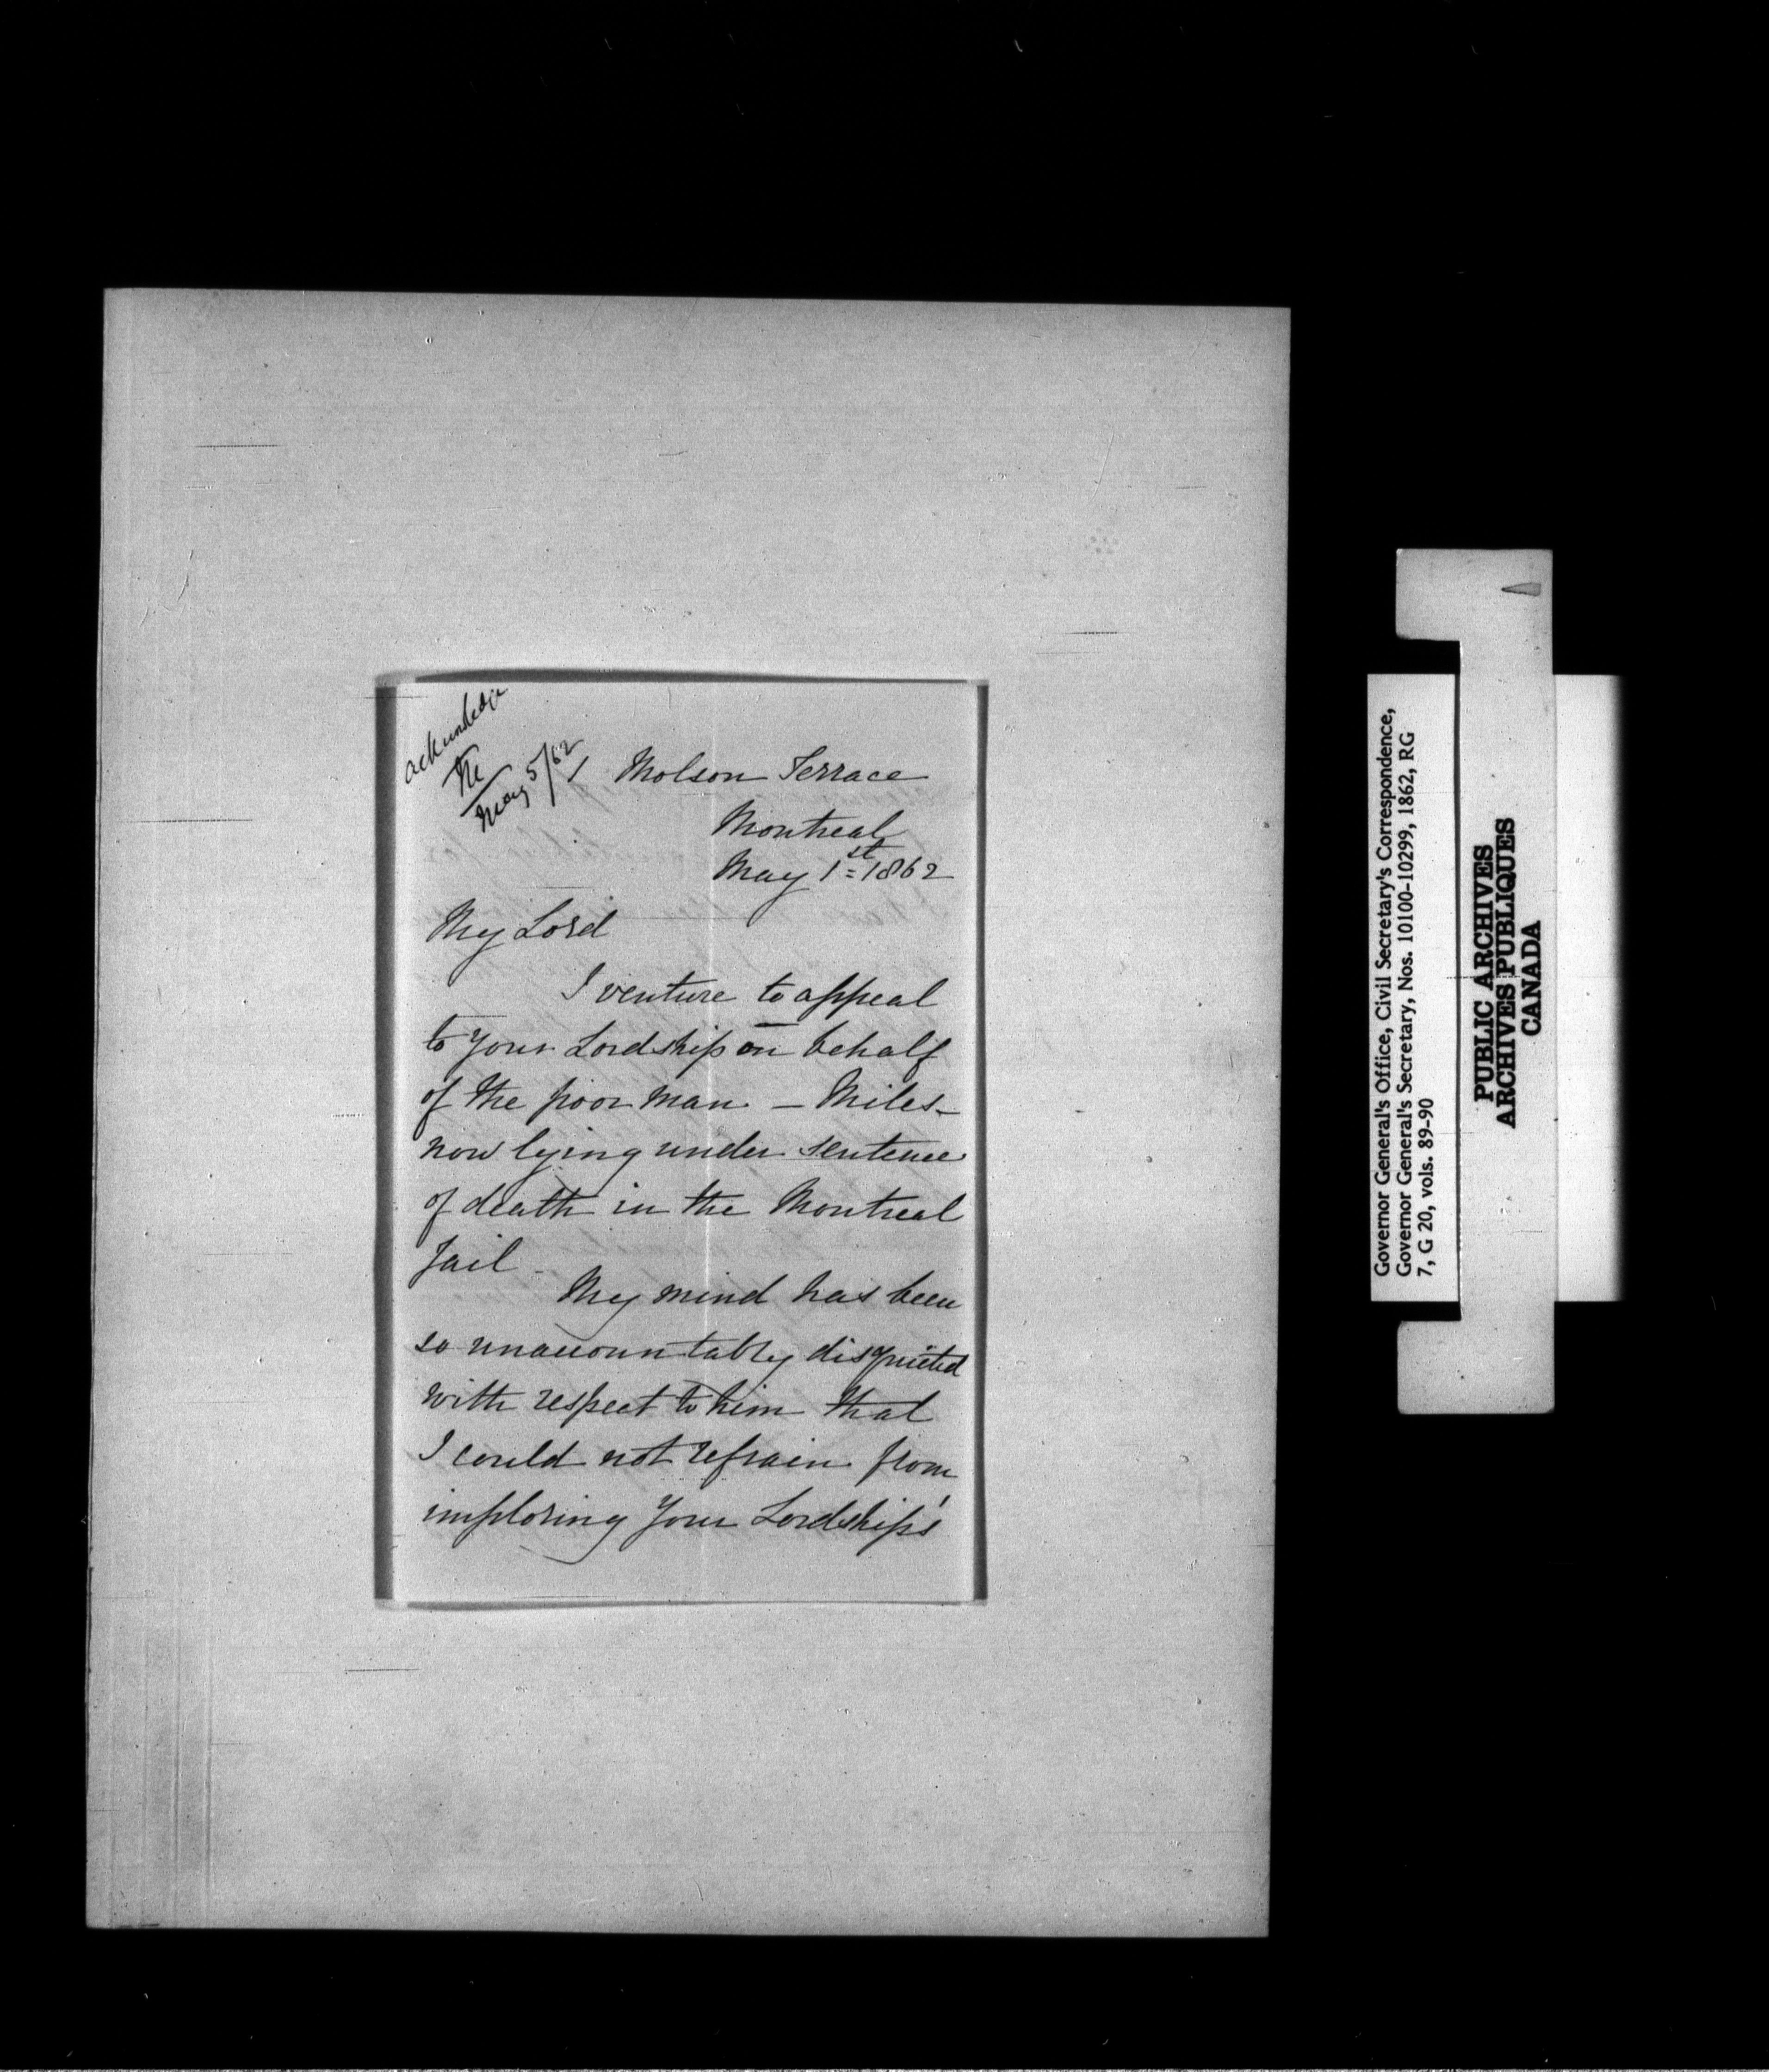 acknowledge
May 5/62
1 Molson Terrace
Montreal
May 1st 1862
My Lord
I venture to appeal
to your Lordship on behalf
of the poor man – Miles –
now lying under sentence
of death in the Montreal
Jail –
My mind has been
so unaccountably disquieted
with respect to him that
I could not refrain from
imploring your Lordship's
Governor General's Office, Civil Secretary's Correspondence,
Governor General's Secretary, Nos. 10100-10299, 1862, RG
7, G 20, vols. 89-90
PUBLIC ARCHIVES
ARCHIVES PUBLIQUES
CANADA